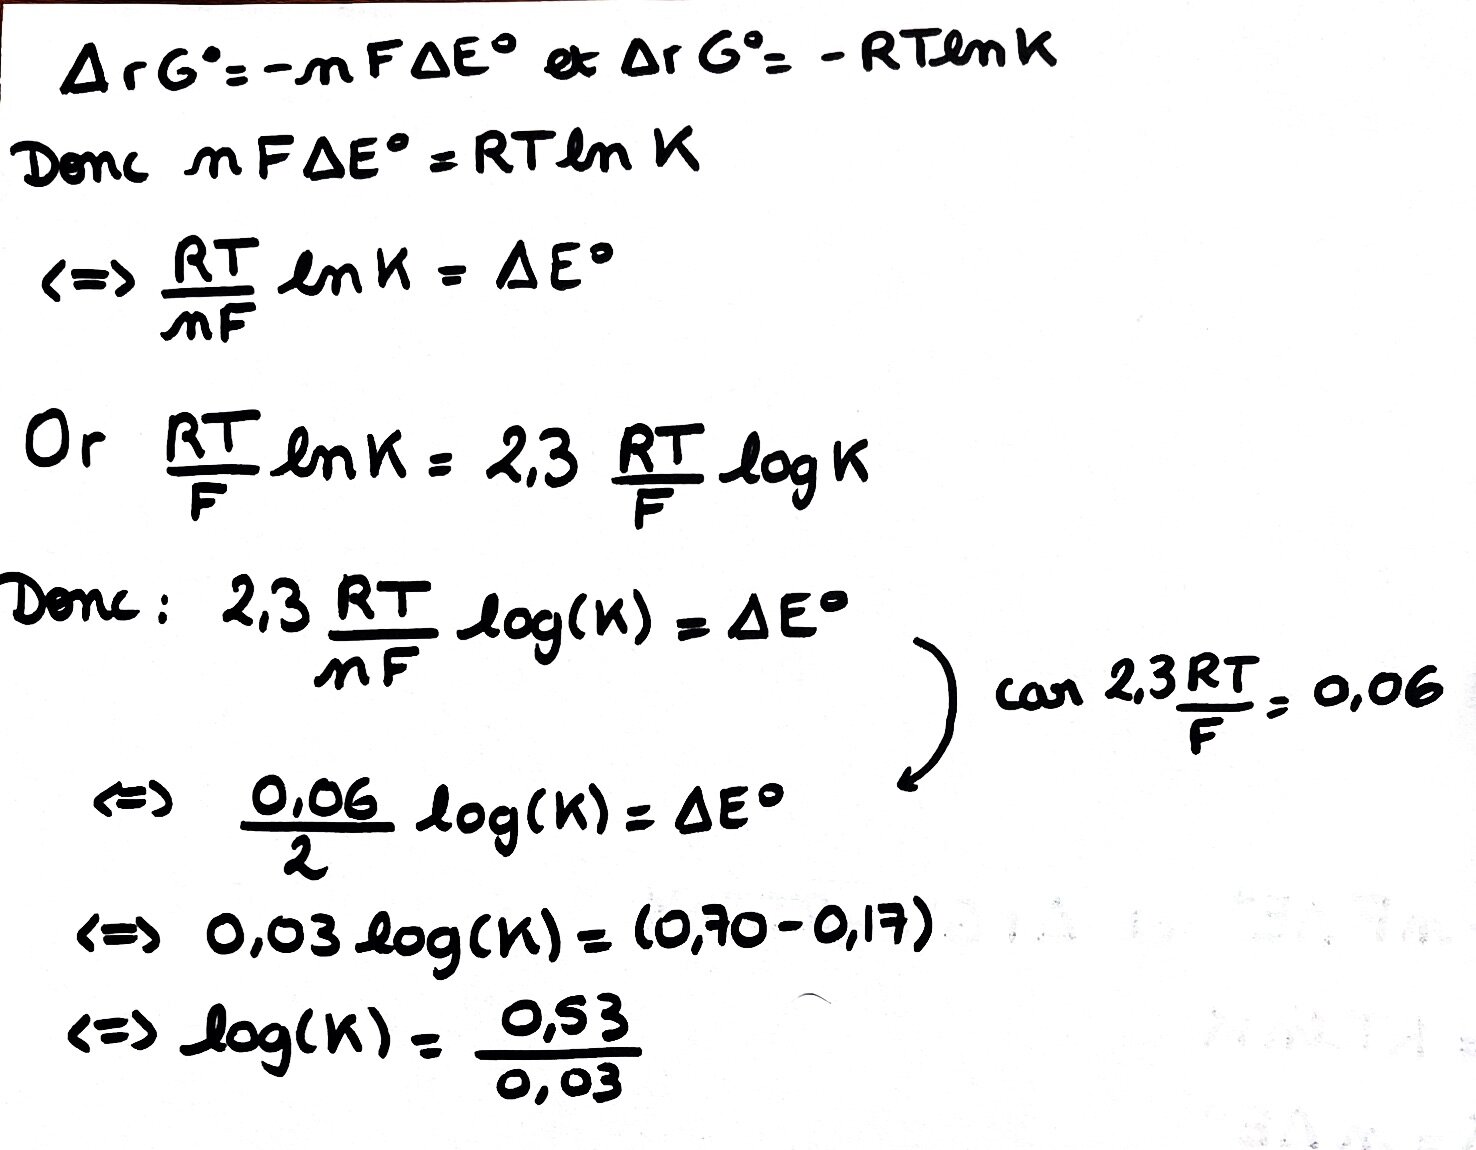 ΔrG°= -nFΔE° et ΔrG°= -RTlnK
Donc nFΔE° = RTln K
<=> RT/nF lnK = ΔE°
Or RT/F lnK = 2,3 RT/F log K
Donc : 2,3 RT/nF log(K) = ΔE°
car 2,3 RT/F = 0,06
<=> 0,06/2 log(K) = ΔE°
<=> 0,03 log(K) = (0,70-0,17)
<=> log(K) = 0,53/0,03